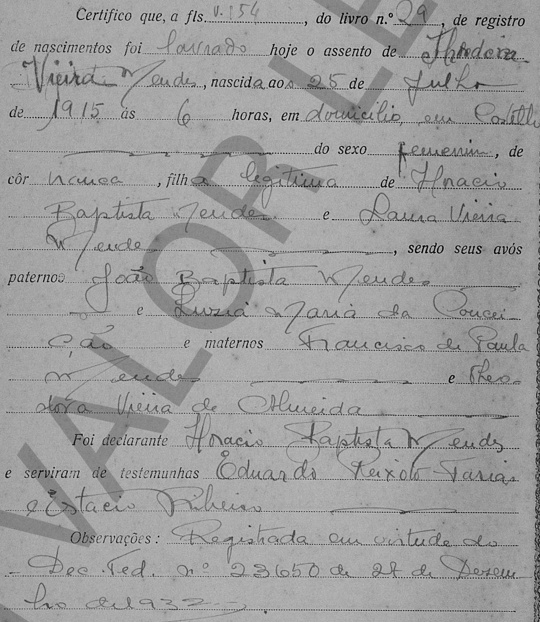 Certifico que, a fls. v.154, do livro n.º 29, de registro
de nascimentos foi lavrado hoje o assento de Theodora
Vieira Mendes, nascida aos 25 de Julho
de 1915 ás 6 horas, em domicilio, em Castello
do sexo femenin, de
côr branca, filha legitima de Horacio
Baptista Mendes e Laura Vieira
Mendes, sendo seus avós
paternos João Baptista Mendes
e Luzia Maria da Concei-
ção e maternos Francisco de Paula
Mendes e Theo-
dora Vieira de Almeida
Foi declarante Horacio Baptista Mendes
e serviram de testemunhas Eduardo Teixoto Farias
e Estacio Ribeiro
Observações: Registrada em virtude do
Dec. Fed. nº 23650 de 27 de Dezem
bro de 1932
VALOR LE